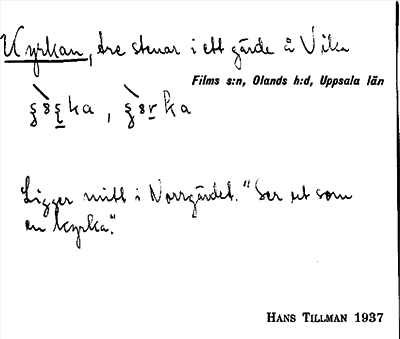 Kyrkan, tre stenar i ett gärde å Vika
Films s:n, Olands h:d, Uppsala län
Ligger mitt i Norrgärdet. "Ser ut som
en kyrka."
HANS TILLMAN 1937